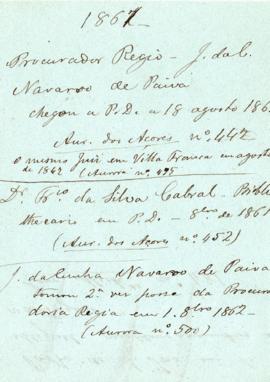 1861
Procurador Regio - J. da C.
Navarro de Paiva
chegou a P.D. a 18 agosto 186
Aur. dos Açores nº 442
o mesmo Juiz em Villa Franca em agosto
de 1862 (Aurora nº 495
Dr. Frco da Silva Cabral. Biblio
thecario em P.D. - 8bro de 1861
(Aur. dos Açores nº 452)
J. da Cunha Navarro de Paiva
tomou 2ª vez posse da Procura
doria Regia em 1. 8bro 1862 -
(Aurora nº 500)